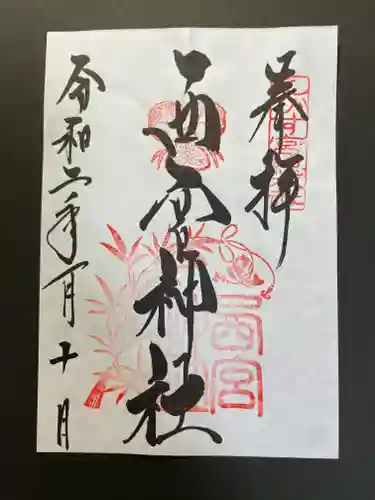 奉拝
西宮神社
令和二年一月十日
西宮